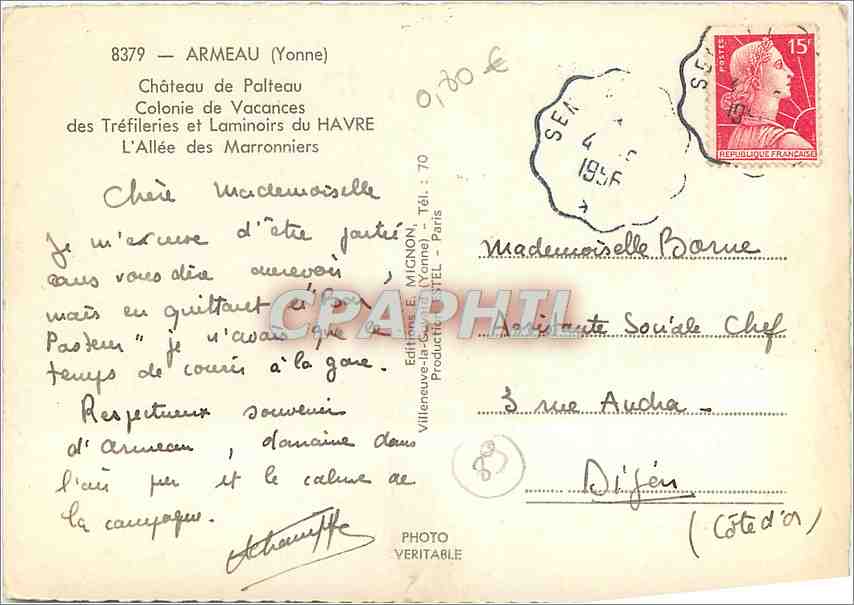 8379 — ARMEAU (Yonne)
Château de Palteau
Colonie de Vacances
des Tréfileries et Laminoirs du HAVRE
L'Allée des Marronniers
0,80 €
Chère Mademoiselle
Je m'excuse d'être partie
sans vous dire aurevoir,
mais en quittant "
Pasteur" je n'avais que le
temps de courir à la gare.
Respectueux souvenir
d'Armeau, domaine dans
l'air pur et le calme de
la campagne.
Editions E. MIGNON,
Villeneuve-la-Guyard (Yonne) - Tél. : 70
Paris
PHOTO
VERITABLE
CPAPHIL
SEN
4
1956
POSTES
15F
REPUBLIQUE FRANÇAISE
Mademoiselle Borne
Assistante Sociale Chef
3 rue Audra -
Dijon
(Côte d'Or)
89